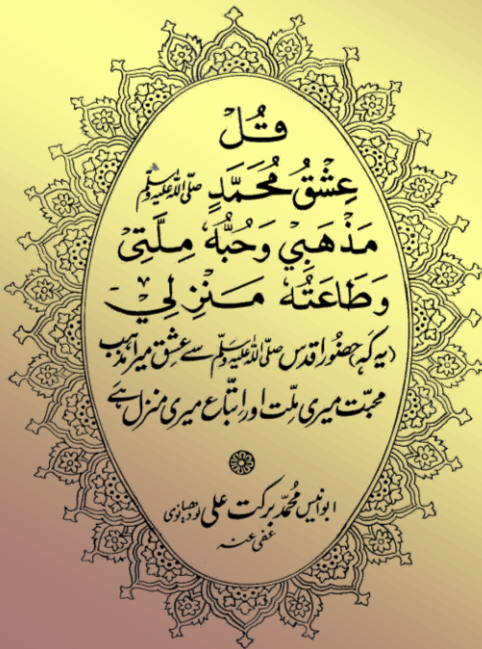 قُلْ
عِشْقُ مُحَمَّدٍ صلی اللہ علیہ وسلم
مَذْهَبِيْ وَحُبُّهٗ مِلَّتِيْ
وَطَاعَتُهٗ مَنْزِلِيْ
(یہ کہ) حضورِ اقدس صلی اللہ علیہ وسلم سے عشق میرا مذہب
محبت میری ملّت اور اتّباع میری منزل ہے
ابوانیس محمّد برکت علی لودھیانوی
عفی عنہ